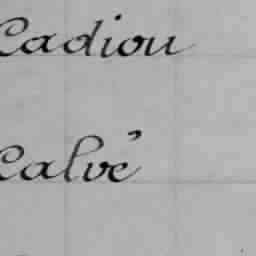 Cadiou
Calvé